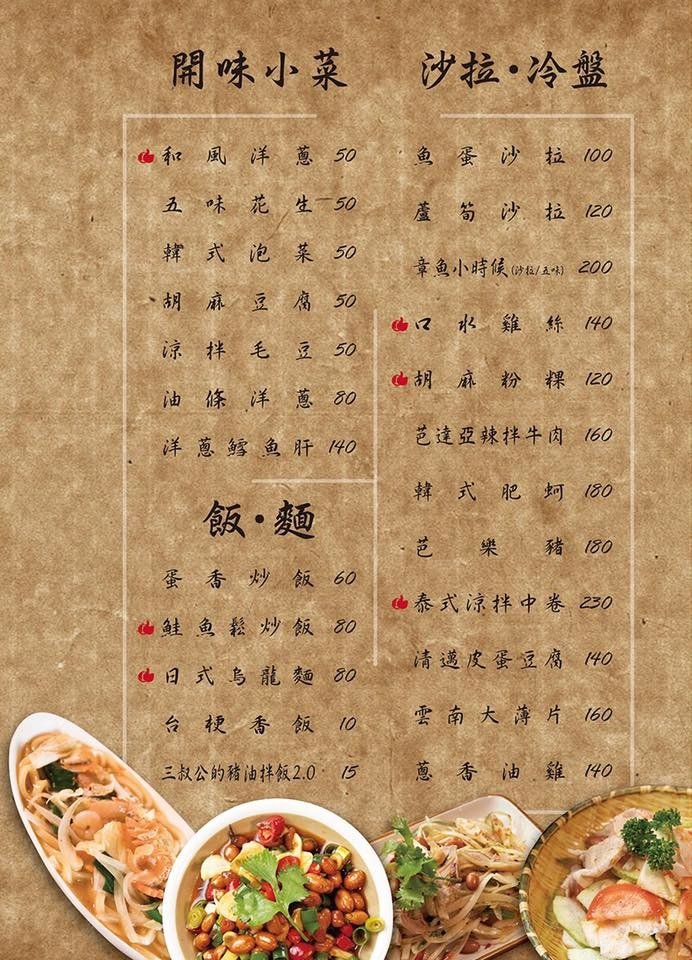 開味小菜
和風洋蔥 50
五味花生 50
韓式泡菜 50
胡麻豆腐 50
涼拌毛豆 50
油條洋蔥 80
洋蔥鱈魚肝 140
飯·麵
蛋香炒飯 60
鮭魚鬆炒飯 80
日式烏龍麵 80
台梗香飯 10
三叔公的豬油拌飯2.0 15
沙拉·冷盤
魚蛋沙拉 100
蘆筍沙拉 120
章魚小時候(沙拉/五味) 200
口水雞絲 140
胡麻粉粿 120
芭達亞辣拌牛肉 160
韓式肥蚵 180
芭樂豬 180
泰式涼拌中卷 230
清邁皮蛋豆腐 140
雲南大薄片 160
蔥香油雞 140